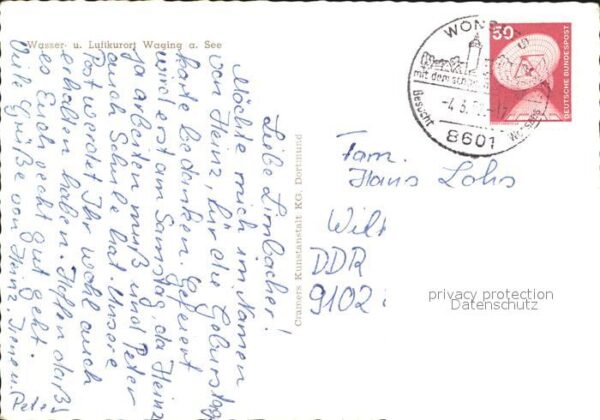 Wasser- u. Luftkurort Waging a. See
Liebe Limbacher!
Möchte mich im Namen
von Heinz, für die Geburtstags
karte bedanken. Gefeiert
wird erst am Samstag, da Heinz
ja arbeiten muß und Peter
auch Schule hat. Unsere
Post werdet Ihr wohl auch
erhalten haben. Hoffen daß
es Euch recht gut geht.
Viele Grüße von Heinz
Peter
Cramers Kunstanstalt KG. Dortmund
WONSEES
mit dem
Besucht
8601
50
DEUTSCHE BUNDESPOST
Fam.
Hans Lohs
DDR
9102
privacy protection
Datenschutz